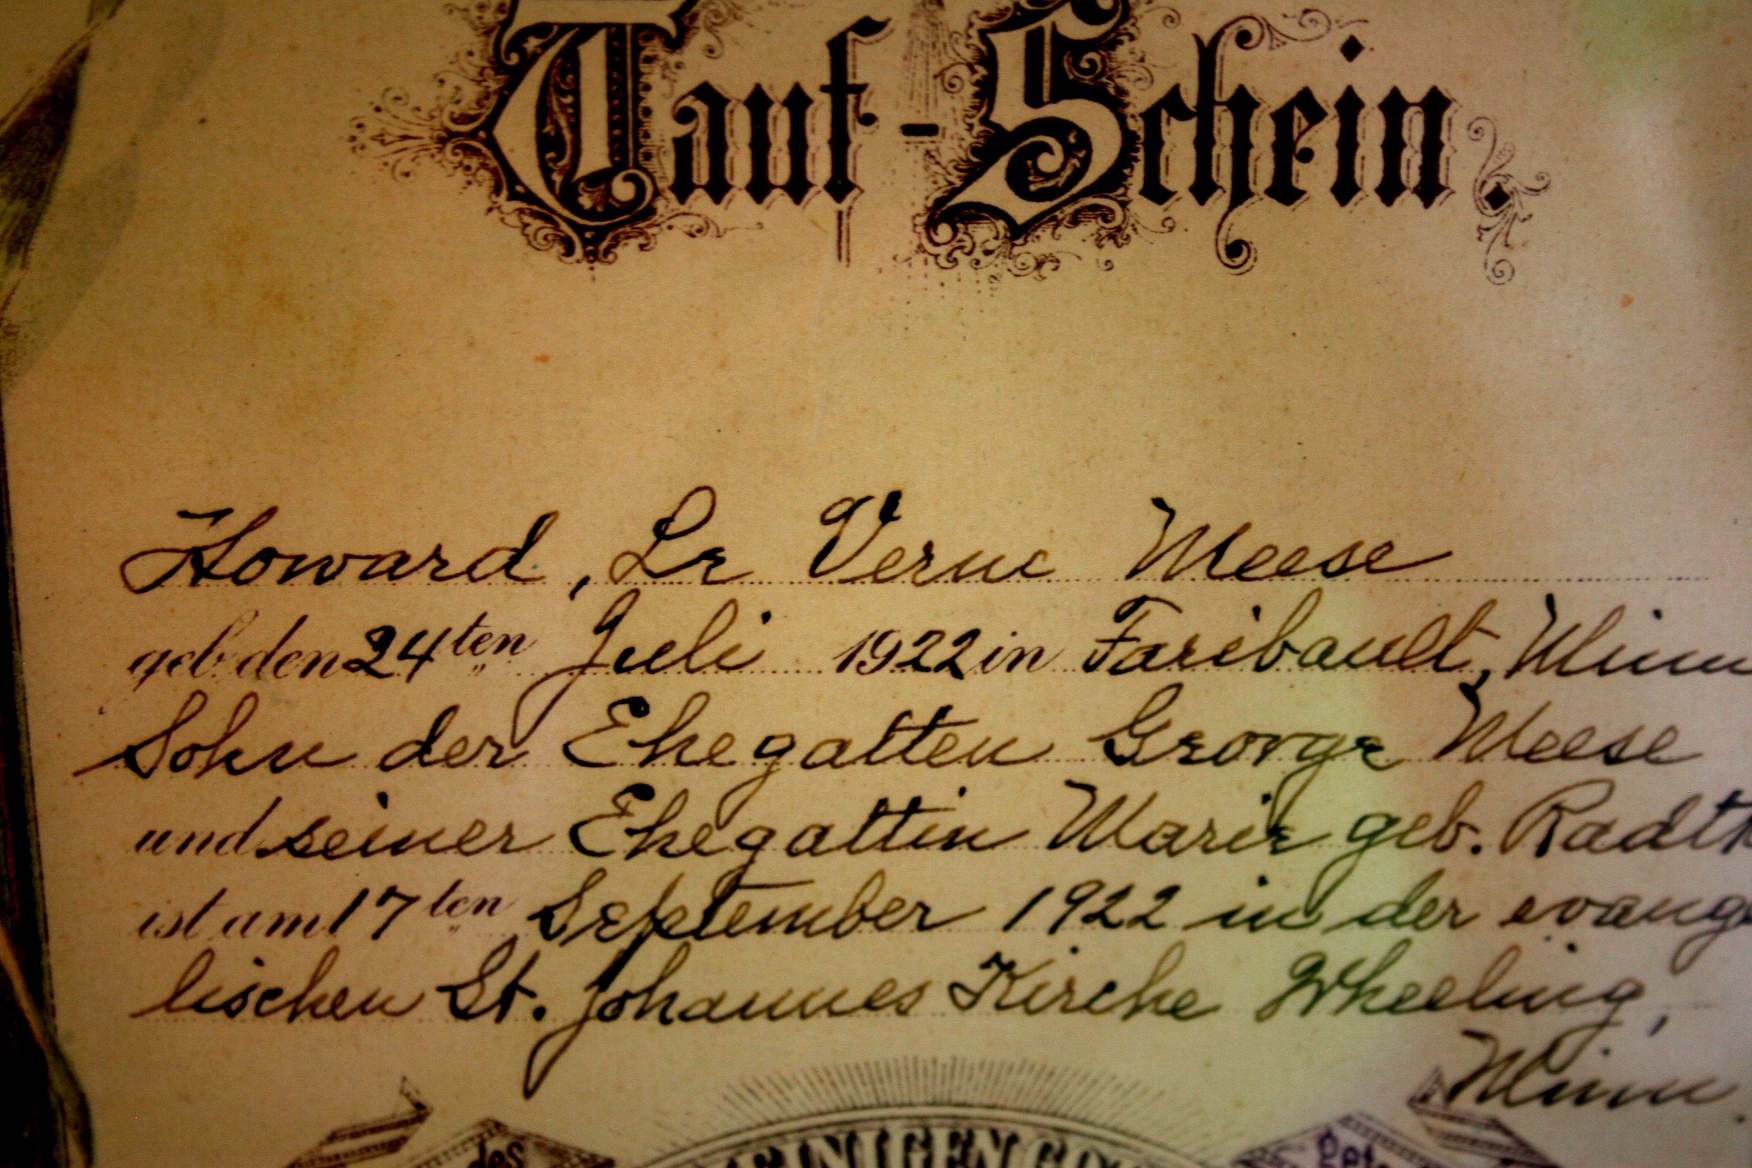 Tauf-Schein.
Howard, Le Verne Meese
geb. den 24ten Juli 1922 in Faribault, Minn
Sohn der Ehegatten George Meese
und seiner Ehegattin Marie geb. Radtk
ist am 17ten September 1922 in der evange
lischen St. Johannes Kirche Wheeling,
Minn.
des